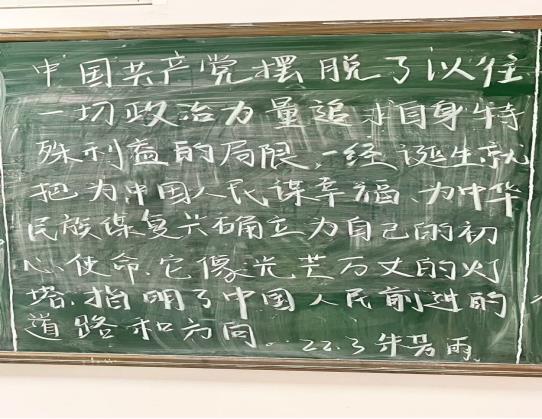 中国共产党摆脱了以往
一切政治力量追求自身特
殊利益的局限,一经诞生就
把为中国人民谋幸福、为中华
民族谋复兴确立为自己的初
心使命.它像光芒万丈的灯
塔,指明了中国人民前进的
道路和方向. 22.3 朱 雨